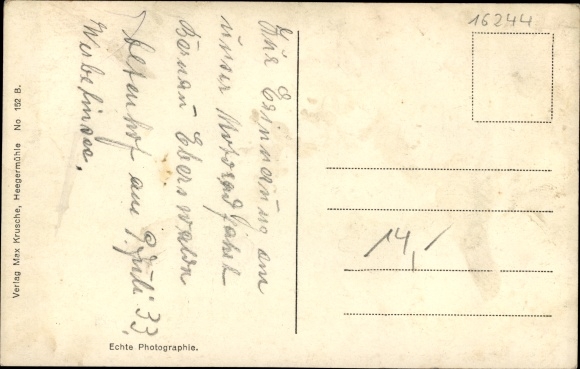 Zur Erinnerung an
unser Motorradfahrt
Bernau Eberswalde
am 9 Juli 33.
Werbelinsee.
16244
14,-
Verlag Max Krusche, Heegermühle No 162 B.
Echte Photographie.